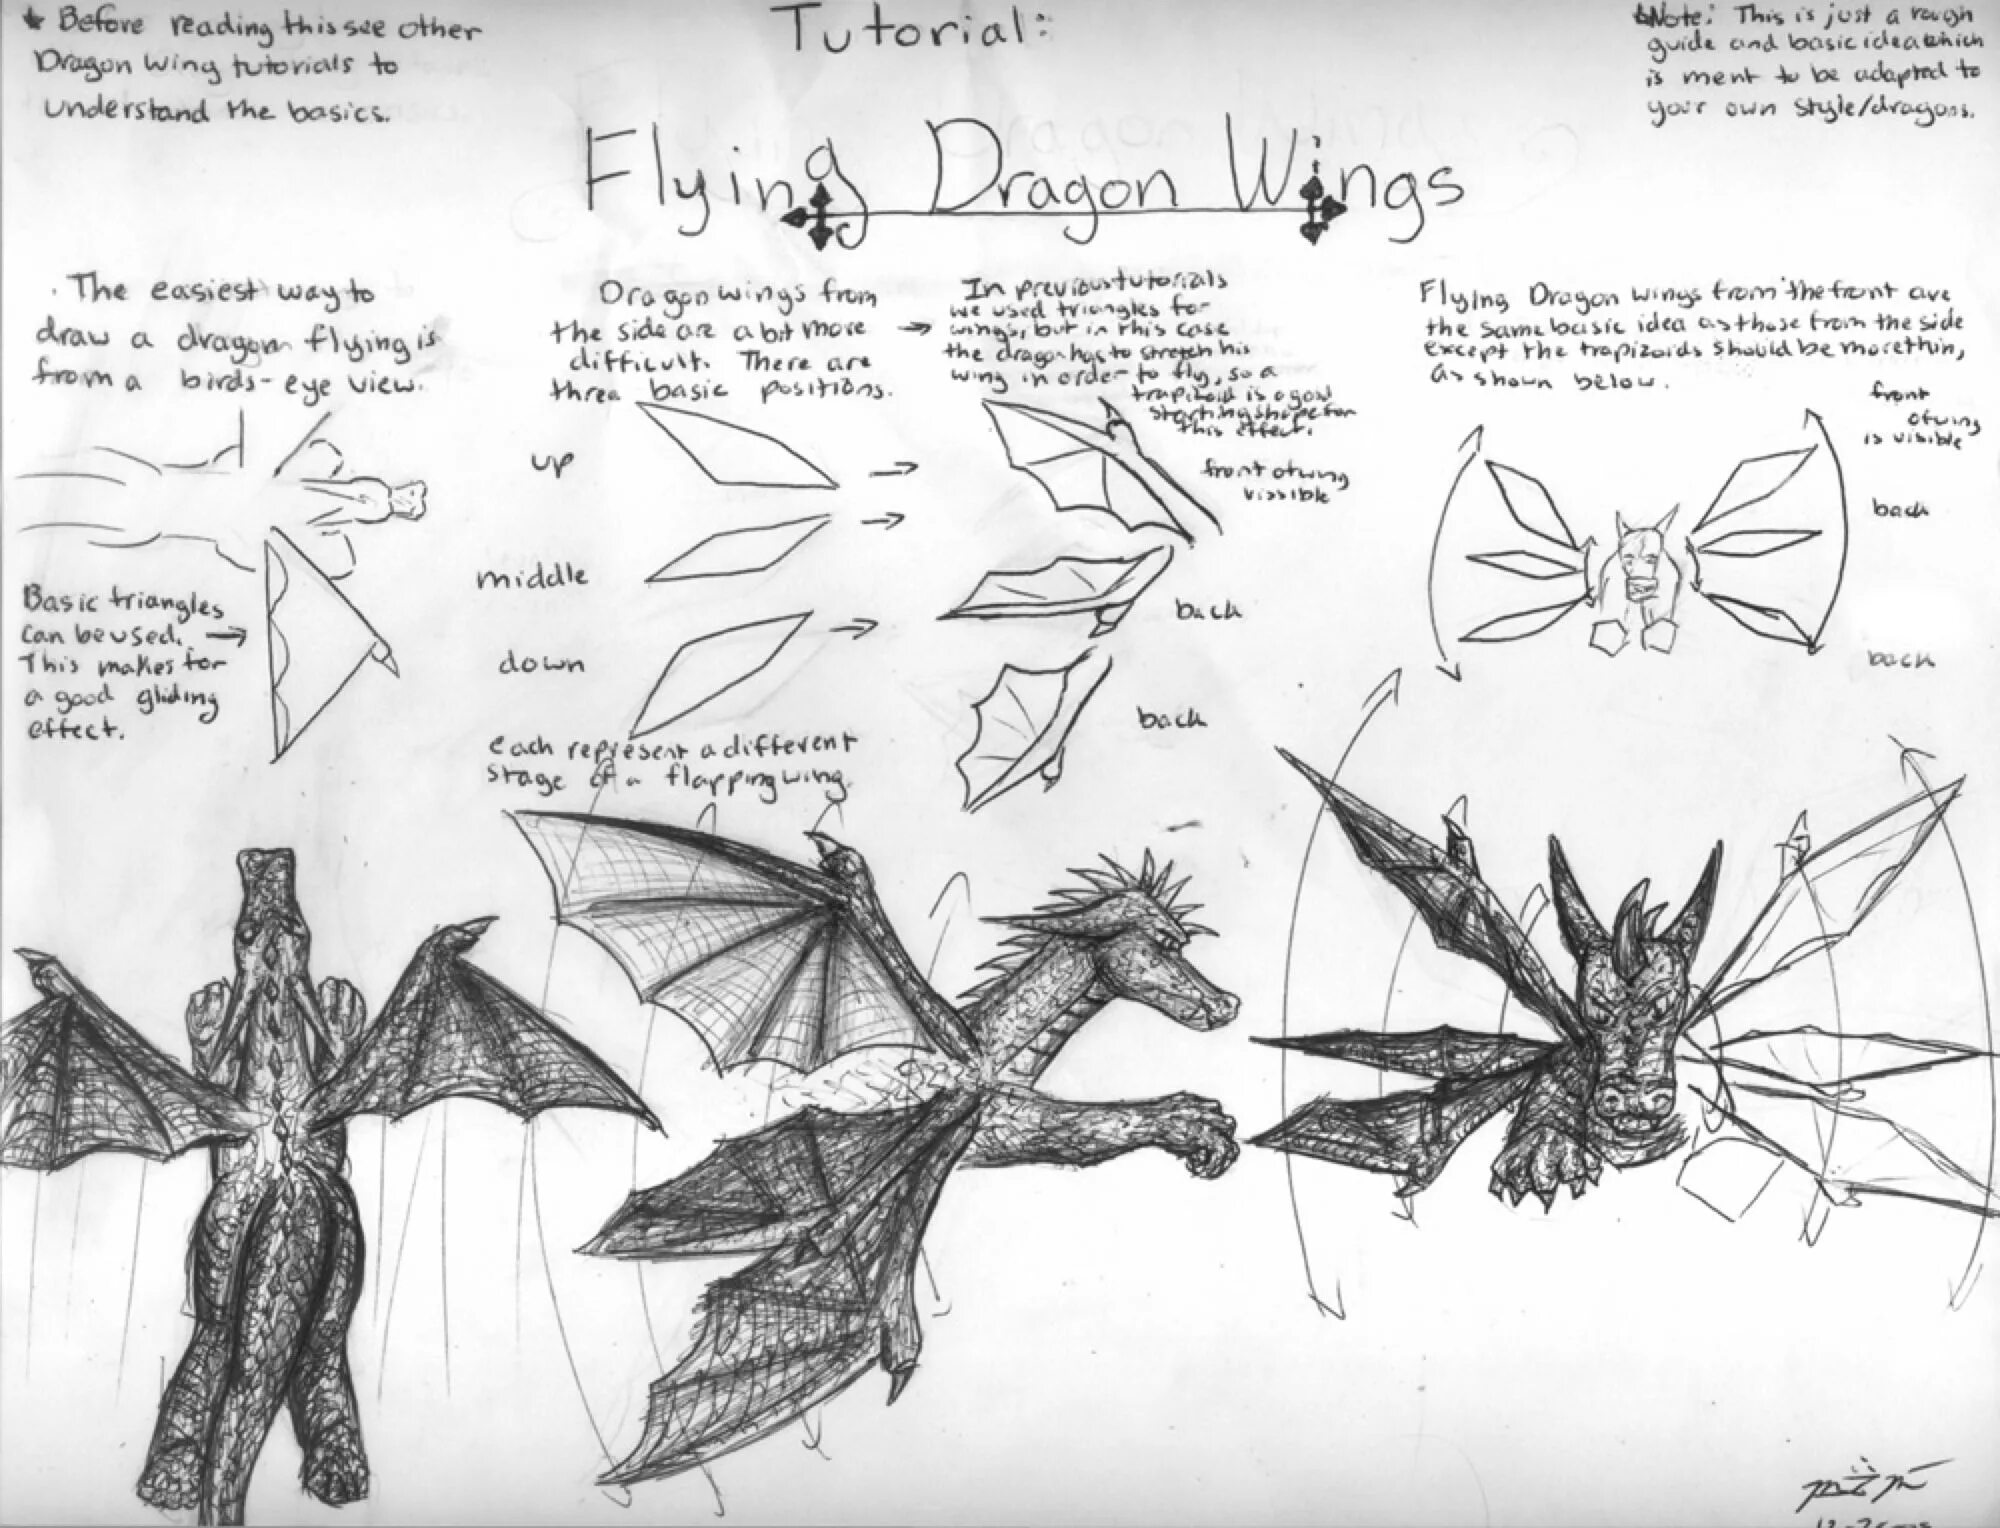 ★ Before reading this see other
Dragon Wing tutorials to
understand the basics.
Tutorial:
Note: This is just a rough
guide and basic idea which
is ment to be adapted to
your own style/dragons.
Flying Dragon Wings
The easiest way to
draw a dragon flying is
from a birds-eye view.
Basic triangles
can be used. →
This makes for
a good gliding
effect.
Dragon wings from
the side are a bit more →
difficult. There are
three basic positions.
up
middle
down
each represent a different
stage of a flapping wing.
In previous tutorials
we used triangles for
wings, but in this case
the dragon has to stretch his
wing in order to fly, so a
trapizoid is a good
starting shape for
this effect.
front of wing
vissible
back
back
Flying Dragon wings from the front are
the same basic idea as those from the side
except the trapizoids should be more thin,
as shown below.
front
of wing
is visible
back
back